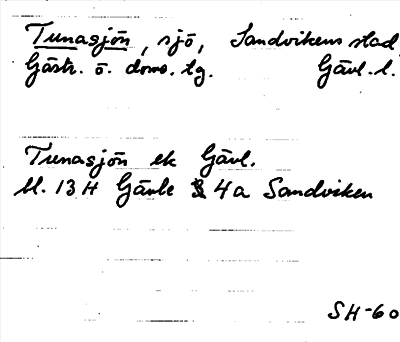 Tunasjön, sjö, Sandvikens stad
Gästr. ö. doms. tg. Gävl. l.
Tunasjön ek Gävl.
bl. 13 H Gävle 4a Sandviken
SH-60